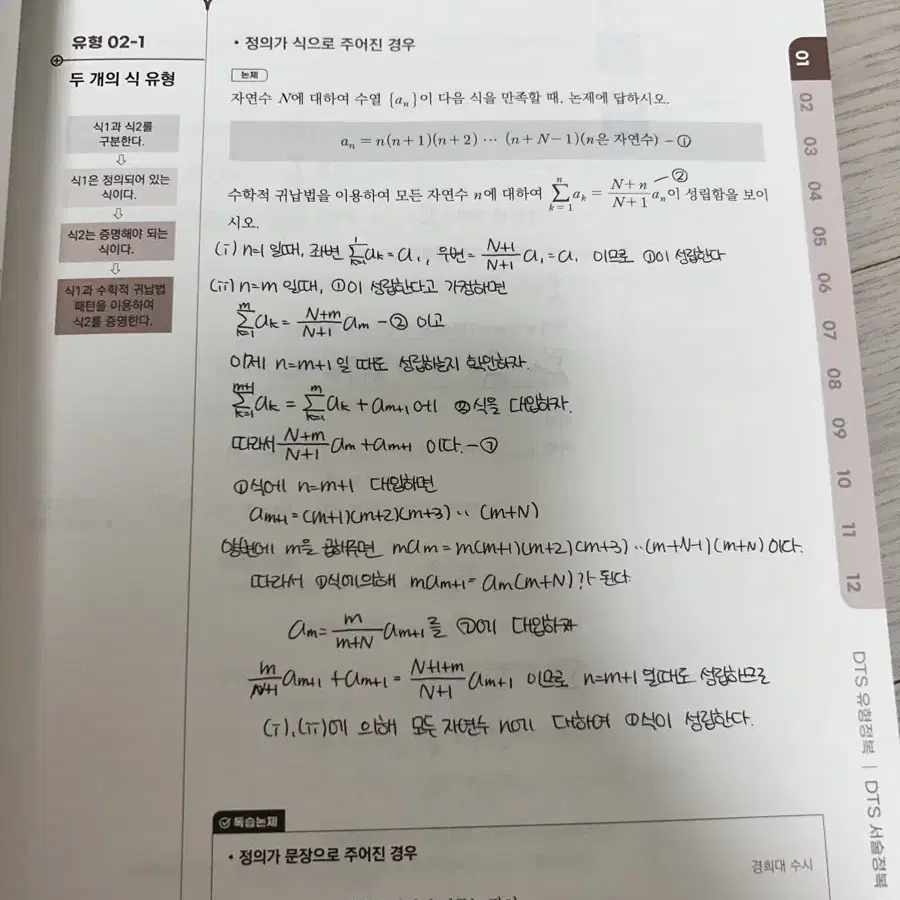 유형 02-1
두 개의 식 유형
식1과 식2를
구분한다.
식1은 정의되어 있는
식이다.
식2는 증명해야 되는
식이다.
식1과 수학적 귀납법
패턴을 이용하여
식2를 증명한다.
• 정의가 식으로 주어진 경우
논제
자연수 N에 대하여 수열 {aₙ}이 다음 식을 만족할 때, 논제에 답하시오.
aₙ = n(n+1)(n+2) ⋯ (n+N−1)(n은 자연수) − ①
수학적 귀납법을 이용하여 모든 자연수 n에 대하여 ∑_{k=1}^{n} aₖ = (N+n)/(N+1) aₙ이 성립함을 보이 ②
시오.
(i) n=1 일때, 좌변 ∑_{k=1}^{1} aₖ = a₁, 우변 = (N+1)/(N+1) a₁ = a₁ 이므로 ①이 성립한다
(ii) n=m 일때, ①이 성립한다고 가정하면
∑_{k=1}^{m} aₖ = (N+m)/(N+1) aₘ − ② 이고
이제 n=m+1 일 때도 성립하는지 확인하자.
∑_{k=1}^{m+1} aₖ = ∑_{k=1}^{m} aₖ + aₘ₊₁ 에 ②식을 대입하자.
따라서 (N+m)/(N+1) aₘ + aₘ₊₁ 이다. − ㉠
①식에 n=m+1 대입하면
aₘ₊₁ = (m+1)(m+2)(m+3) ‥ (m+N)
양변에 m을 곱해주면 maₘ = m(m+1)(m+2)(m+3) ‥ (m+N-1)(m+N) 이다.
따라서 ①식에의해 maₘ₊₁ = aₘ(m+N) 가 된다.
aₘ = m/(m+N) aₘ₊₁를 ㉠에 대입하자
m/(N+1) aₘ₊₁ + aₘ₊₁ = (N+1+m)/(N+1) aₘ₊₁ 이므로 n=m+1 일때도 성립하므로
(i), (ii)에 의해 모든 자연수 n에 대하여 ①식이 성립한다.
독습논제
• 정의가 문장으로 주어진 경우
경희대 수시
01
02
03
04
05
06
07
08
09
10
11
12
DTS 유형정복 | DTS 서술정복